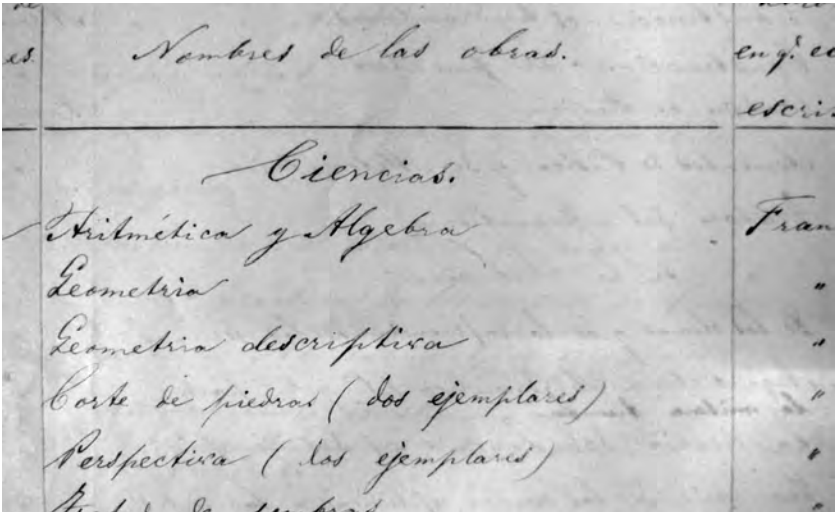 es. Nombres de las obras. en q.e es
escri
Ciencias.
Aritmética y Algebra Fran
Geometria "
Geometria descriptiva "
Corte de piedras (dos ejemplares) "
Perspectiva (dos ejemplares) "
de sombras "